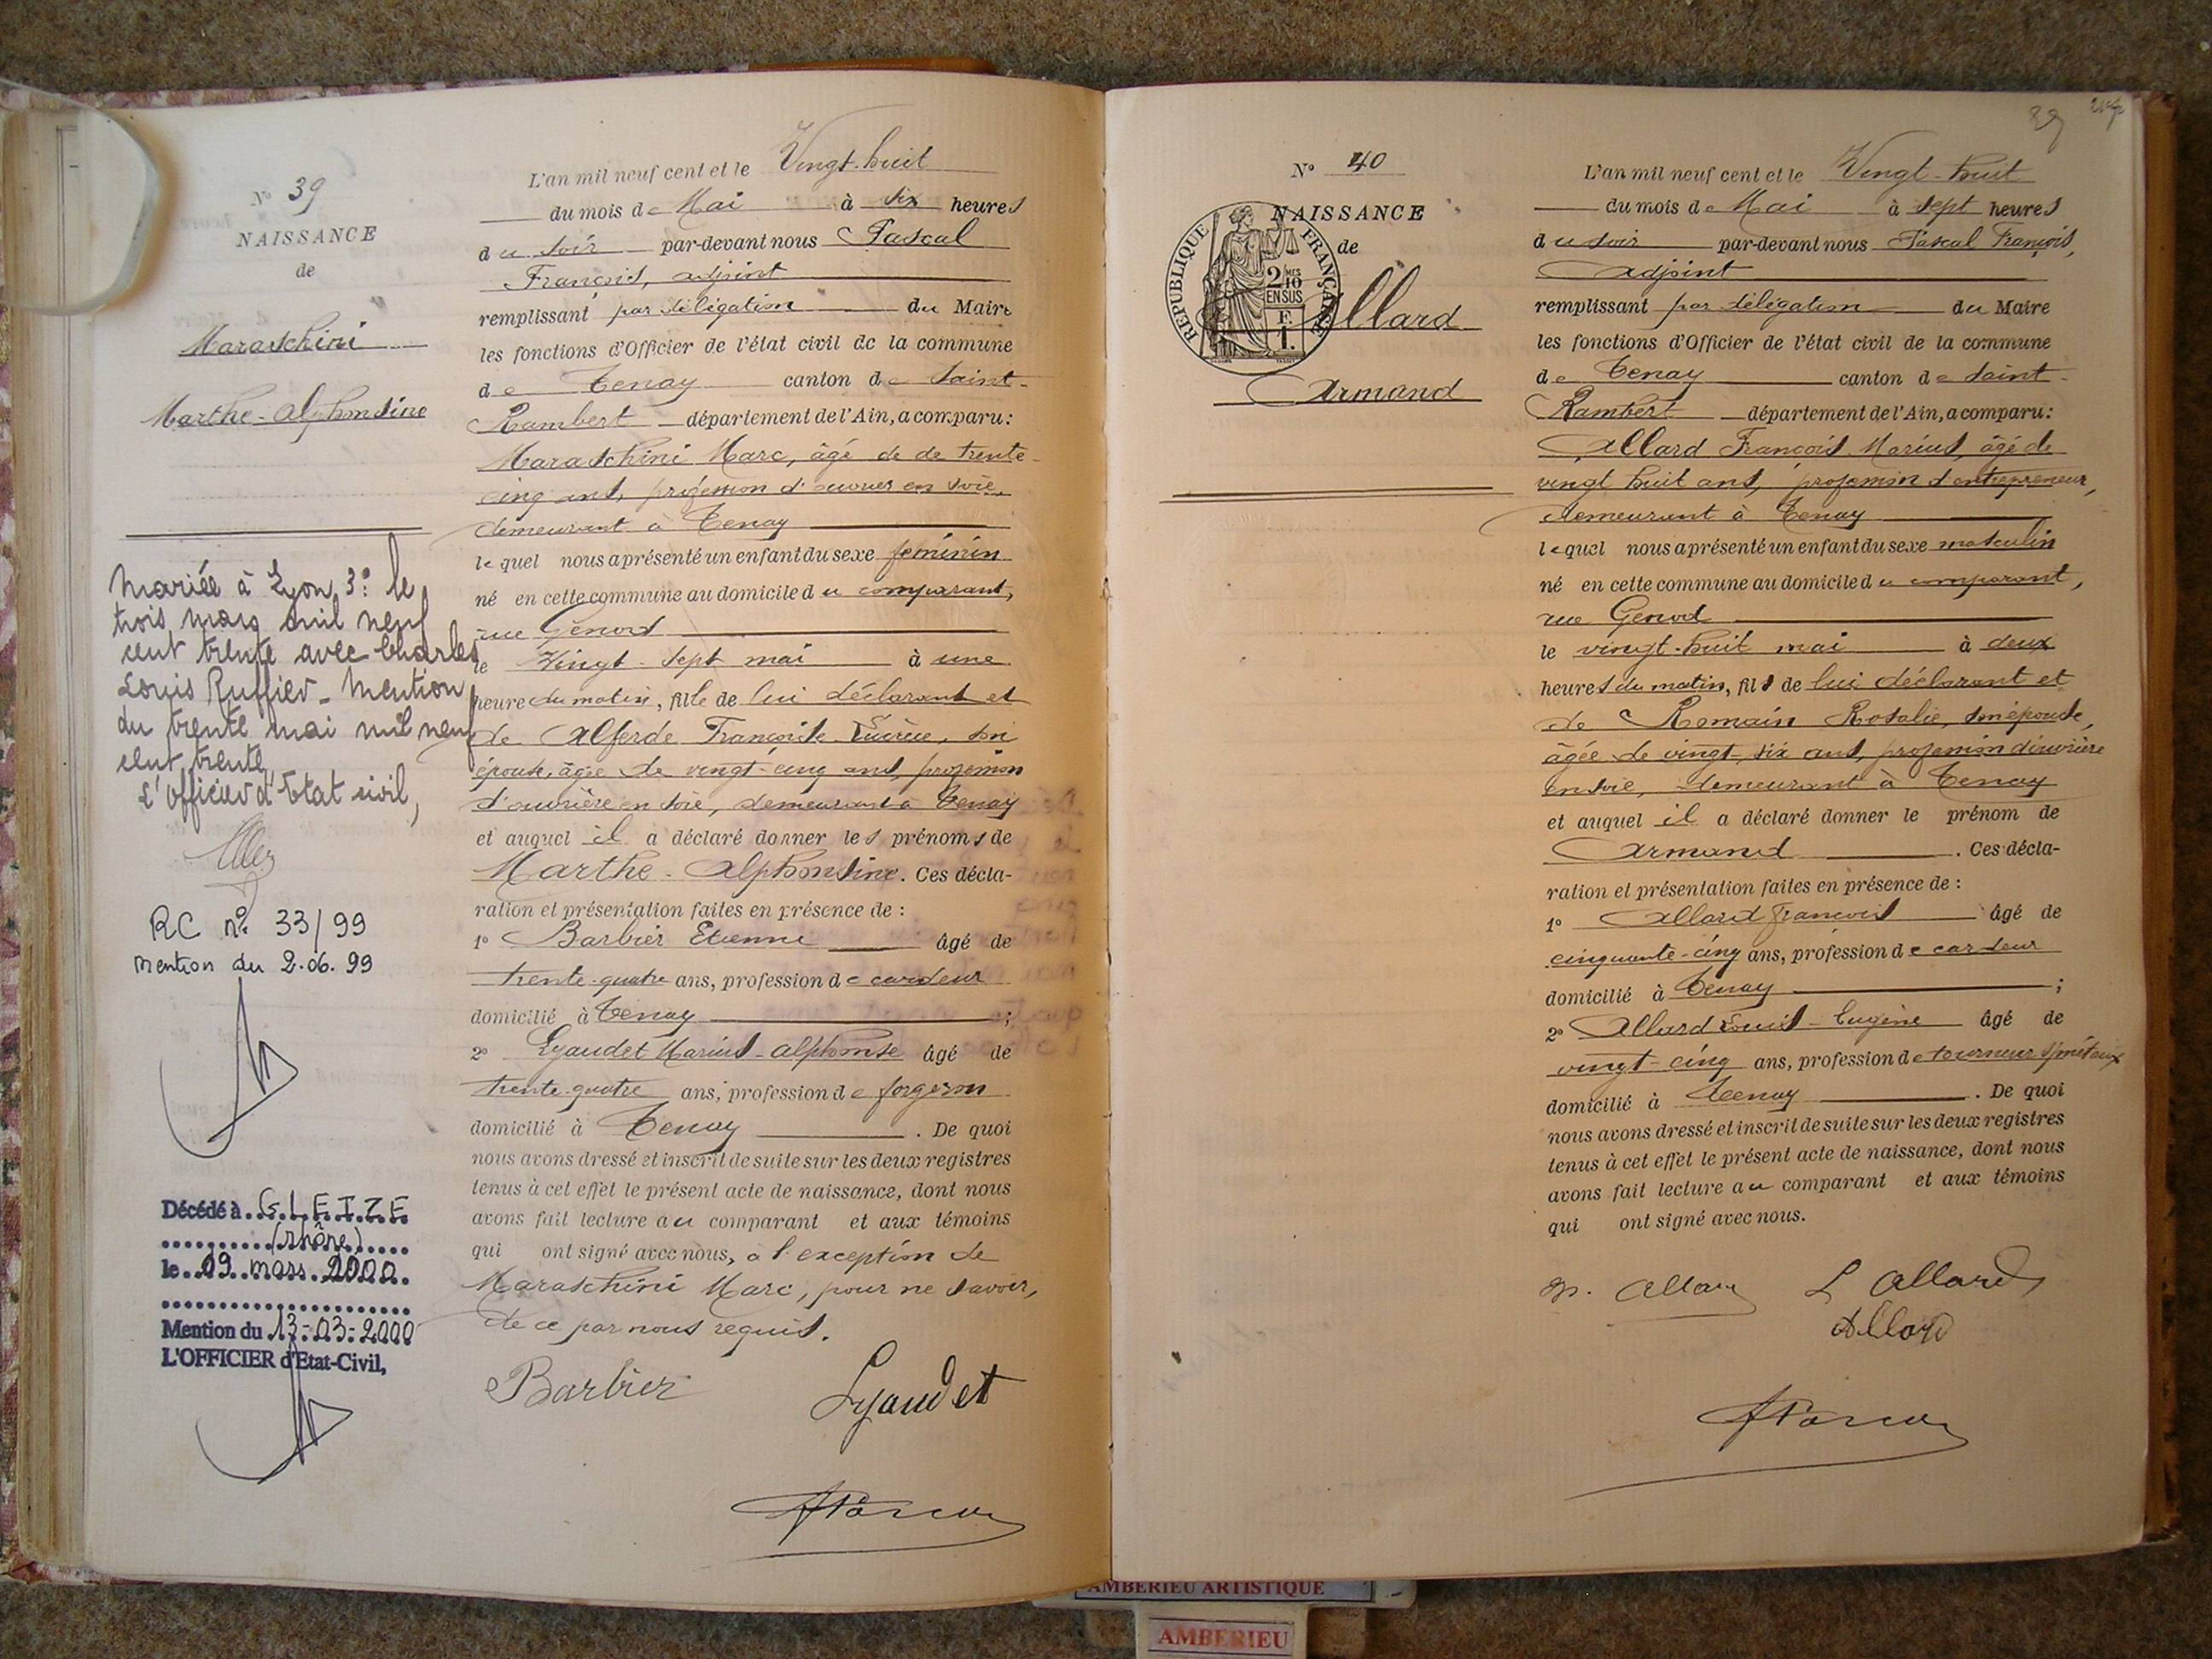 N° 39
NAISSANCE
de
Maraschini
Marthe-Alphonsine
Mariée à Lyon 3e le
trois mars mil neuf
cent trente avec Charles
Louis Ruffier - Mention
du trente mai mil neuf
cent trente
L'officier d'Etat civil,
RC n° 33/99
Mention du 2.06.99
Décédé à GLEIZE
(Rhône)
le 09 mars 2000
Mention du 13-03-2000
L'OFFICIER d'Etat-Civil,
L'an mil neuf cent et le Vingt-huit
du mois de Mai à six heures
du soir par-devant nous Pascal
François, adjoint
remplissant par délégation du Maire
les fonctions d'Officier de l'état civil de la commune
de Tenay canton de Saint-
Rambert département de l'Ain, a comparu:
Maraschini Marc, âgé de de trente-
cinq ans, profession d'ouvrier en soie,
demeurant à Tenay
lequel nous a présenté un enfant du sexe féminin
né en cette commune au domicile du comparant,
rue Genod
le Vingt-sept mai à une
heure du matin, fille de lui déclarant et
de Alferde Françoise, son
épouse, âgée de vingt-cinq ans, profession
d'ouvrière en soie, demeurant à Tenay
et auquel il a déclaré donner les prénoms de
Marthe-Alphonsine. Ces décla-
ration et présentation faites en présence de :
1° Barbier Etienne âgé de
trente-quatre ans, profession de cardeur
domicilié à Tenay ;
2° Lyaudet Marius-Alphonse âgé de
trente-quatre ans, profession de forgeron
domicilié à Tenay . De quoi
nous avons dressé et inscrit de suite sur les deux registres
tenus à cet effet le présent acte de naissance, dont nous
avons fait lecture au comparant et aux témoins
qui ont signé avec nous, à l'exception de
Maraschini Marc, pour ne savoir,
de ce par nous requis.
Barbier Lyaudet
FPascal
N° 40
NAISSANCE
de
Allard
Armand
REPUBLIQUE FRANÇAISE
2/10 MES
EN SUS
F.
1.
39
L'an mil neuf cent et le Vingt-huit
du mois de Mai à sept heures
du soir par-devant nous Pascal François,
adjoint
remplissant par délégation du Maire
les fonctions d'Officier de l'état civil de la commune
de Tenay canton de Saint-
Rambert département de l'Ain, a comparu:
Allard François Marius, âgé de
vingt huit ans, profession d'entrepreneur,
demeurant à Tenay
lequel nous a présenté un enfant du sexe masculin
né en cette commune au domicile du comparant,
rue Genod
le vingt-huit mai à deux
heures du matin, fils de lui déclarant et
de Romain Rosalie, son épouse,
âgée de vingt six ans, profession d'ouvrière
en soie, demeurant à Tenay
et auquel il a déclaré donner le prénom de
Armand . Ces décla-
ration et présentation faites en présence de :
1° Allard François âgé de
cinquante-cinq ans, profession de cardeur
domicilié à Tenay ;
2° Allard Louis-Eugène âgé de
vingt-cinq ans, profession de tourneur s/métaux
domicilié à Tenay . De quoi
nous avons dressé et inscrit de suite sur les deux registres
tenus à cet effet le présent acte de naissance, dont nous
avons fait lecture au comparant et aux témoins
qui ont signé avec nous.
m. Allard L Allard
Allard
FPascal
AMBERIEU ARTISTIQUE
AMBERIEU